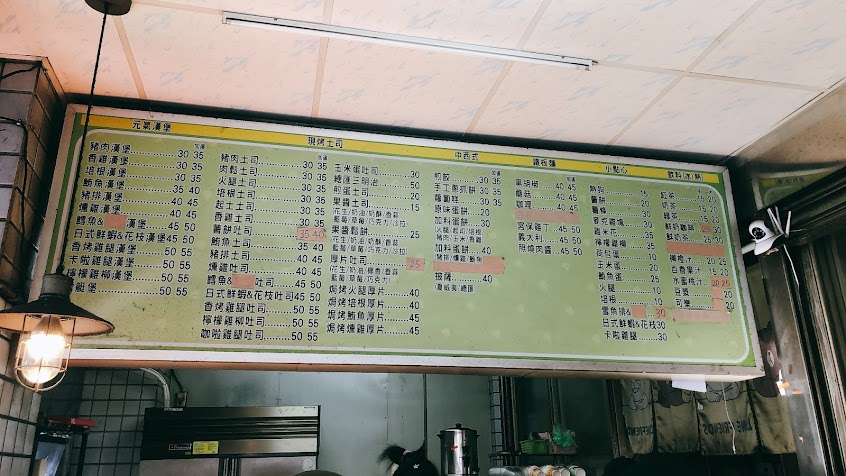 元氣漢堡 加蛋
豬肉漢堡 30 35
香雞漢堡 30 35
培根漢堡 30 35
火腿漢堡 30 35
鮪魚漢堡 30 35
豬排漢堡 40 45
燻雞漢堡 40 45
鱈魚 漢堡 45 50
日式鮮蝦&花枝漢堡 45 50
香烤雞腿漢堡 50 55
卡啦雞腿漢堡 50 55
檸檬雞柳漢堡 50 55
現烤土司 加蛋
豬肉土司 30 35
肉鬆土司 30 35
火腿土司 30 35
培根土司 30 35
起士土司 30 35
香雞土司 30 35
薯餅吐司 35 40
鮪魚土司 30 35
豬排土司 40 45
燻雞吐司 40 45
鱈魚& 吐司 45 50
日式鮮蝦&花枝吐司 45 50
香烤雞腿吐司 50 55
檸檬雞柳吐司 50 55
咖啦雞腿吐司 50 55
玉米蛋吐司 30
總匯三明治 50
煎蛋土司 20
果醬土司 15
果醬鬆餅 25
厚片吐司 25
焗烤火腿厚片 40
焗烤培根厚片 40
焗烤鮪魚厚片 45
焗烤燻雞厚片 45
中西式 加蛋
煎餃 30 40
手工蔥抓餅 30 35
蘿蔔糕 30 35
原味蛋餅 20
加料蛋餅 30
加料蛋餅 40
披薩 45
鐵板麵 加蛋
黑胡椒 40 45
蘑菇 40 45
咖哩 40 45
宮保雞丁 45 50
義大利 45 50
照燒肉醬 45 50
小點心
熱狗 15
薯餅 20
薯條 30
麥克雞塊 30
雞米花 35
檸檬雞柳 35
荷包蛋 10
玉米蛋 20
鮪魚蛋 25
火腿 10
培根 10
日式鮮蝦&花枝 30
卡啦雞腿 30
飲料(冰/熱)
紅茶 15 20
奶茶 15 20
綠茶 15 20
鮮奶咖啡 30
鮮奶茶
柳橙汁 20 25
百香果汁 15 20
水蜜桃汁 20 25
豆漿 20
可樂 20
LINE FRIENDS